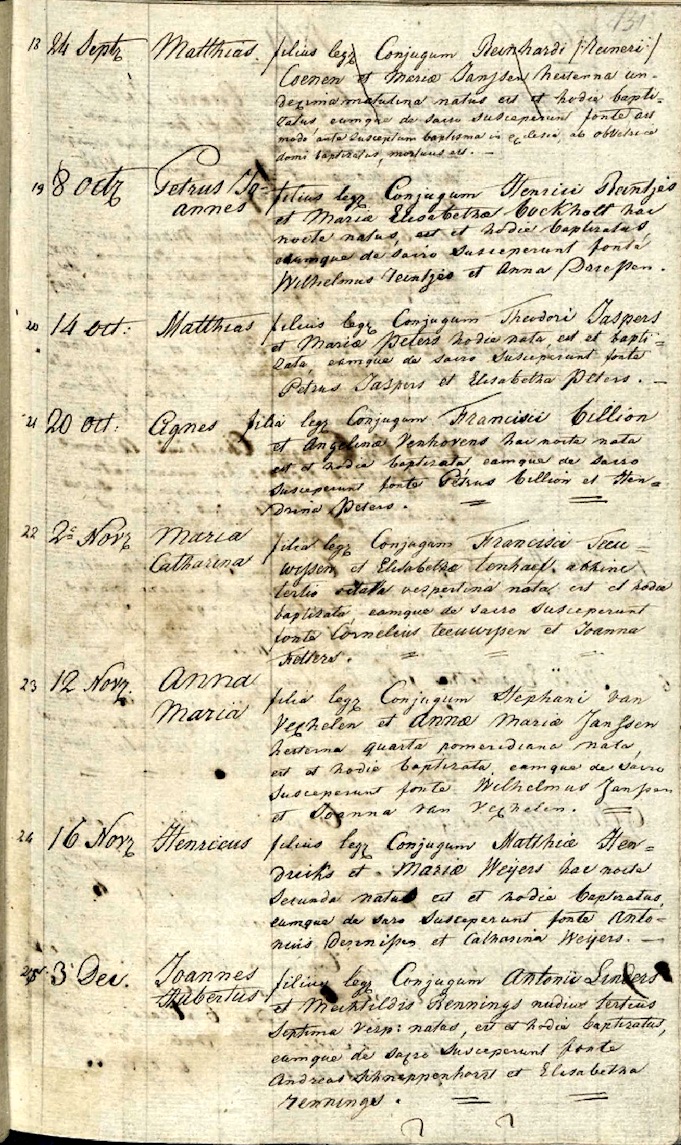 131
18 24 Septr Matthias filius legr Conjugum Reinhardi /Reineri/
Coenen et Mariæ Janssen hesterna un-
dezima matutina natus est et hodie bapti-
zatus eumque de sacro susceperunt fonte
modo ante susceptum baptisma in eclesia, ab obstetrice
domi baptizatus, mortuus est. —
19 8 octr Petrus Jo= filius legr Conjugum Henrici Reintjes
annes et Mariæ Elisabethæ Bockholt hac
nocte natus, est et hodie baptizatus,
eumque de sacro susceperunt fonte
Wilhelmus Reintjes et Anna Driessen.
20 14 oct: Matthias filius legr Conjugum Theodori Jaspers
et Mariæ Peters hodie nata, est et bapti=
zata, eamque de sacro susceperunt fonte
Petrus Jaspers et Elisabetha Peters. —
21 20 oct: Agnes filia legr Conjugum Francisci Cillion
et Angelinæ Venhovens hac nocte nata
est et hodie baptizata, eamque de sacro
susceperunt fonte Petrus Cillion et Hen=
drina Peters.
22 2 Novr Maria filia legr Conjugum Francisci Teeu=
Catharina wissen et Elisabethæ Lenhaet, abhinc
tertio vespertina nata est et hodie
baptizata, eamque de sacro susceperunt
fonte Cornelius Teeuwissen et Joanna
23 12 Novr. Anna filia legr Conjugum Stephani van
Maria Veghelen et Annæ Mariæ Janssen
hesterna quarta pomeridiana nata,
est et hodie baptizata, eamque de sacro
susceperunt fonte Wilhelmus Janssen
et Joanna van Veghelen.
24 16 Novr Henricus filius legr Conjugum Matthiæ Hen=
driks et Mariæ Weijers hac nocte
secunda natus est et hodie baptizatus,
eumque de saro susceperunt fonte Anto=
nius Dennissen et Catharina Weijers. —
25 3 Dec. Joannes filius legr Conjugum Antonii Linders
Hubertus et Mechtildis Rennings nudius tertius
septima vesp: natus, est et hodie baptizatus,
eumque de sacro susceperunt fonte
Andreas Schnappenhorst et Elisabetha
Rennings.